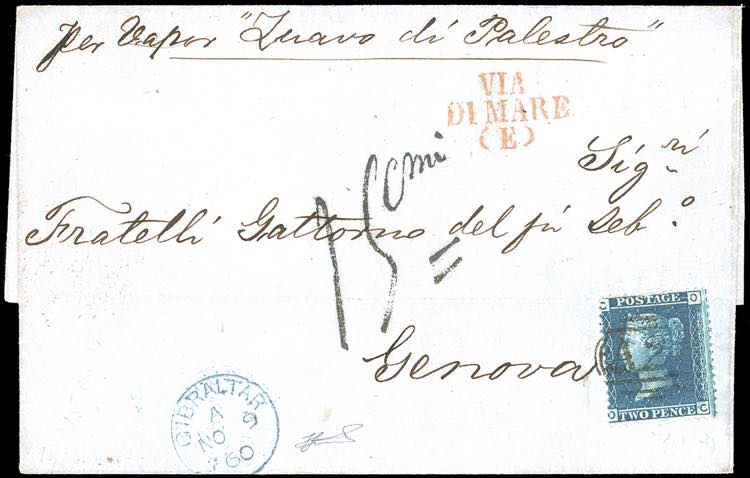 per Vapor "Zuavo di Palestro"
VIA
DI MARE
(E)
Sigri
15 cmi
Fratelli Gattorno del fu Deb.o
Genova
C O
POSTAGE
TWO PENCE
O C
GIBRALTAR
A
NO 9
60